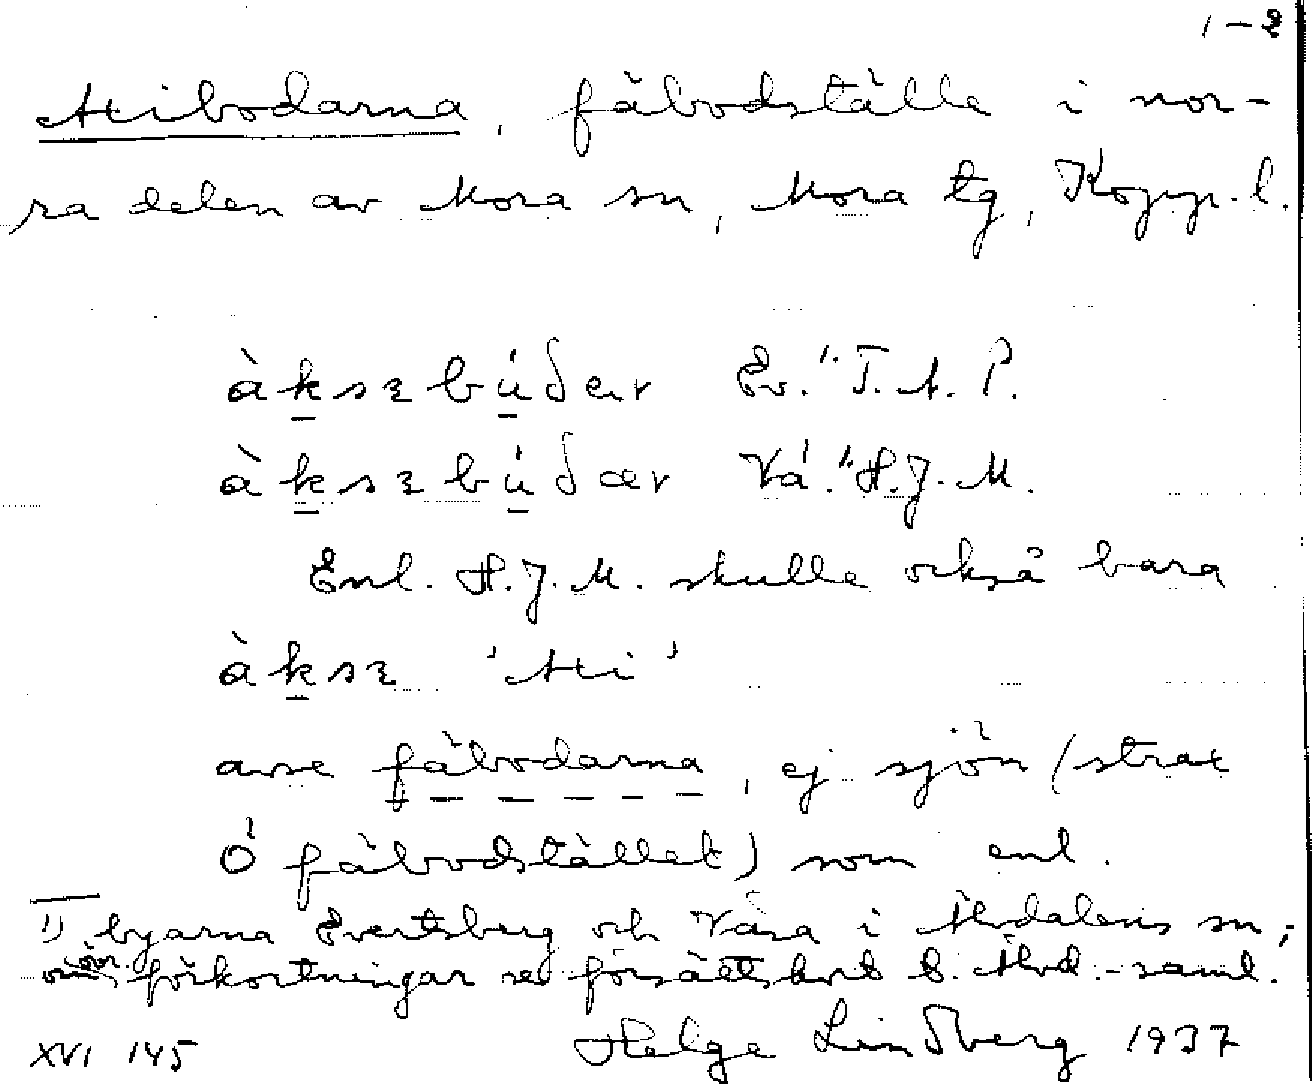 1–2
Axibodarna, fäbodställe i nor-
ra delen av Mora sn, Mora tg, Kopp. l.
àksɛbúðer Ev.¹⁾ T. A. P.
àksɛbúðær Vä.¹⁾ H. J. M.
Enl. H. J. M. skulle också bara
àksɛ 'Axi'
avse fäbodarna, ej sjön (strax
Ö fäbodstället) som enl.
1) byarna Evertsberg och Väsa i Älvdalens sn;
övr. förkortningar se försättskort t. Älvd.-saml.
XVI 145 Helge Lindberg 1937